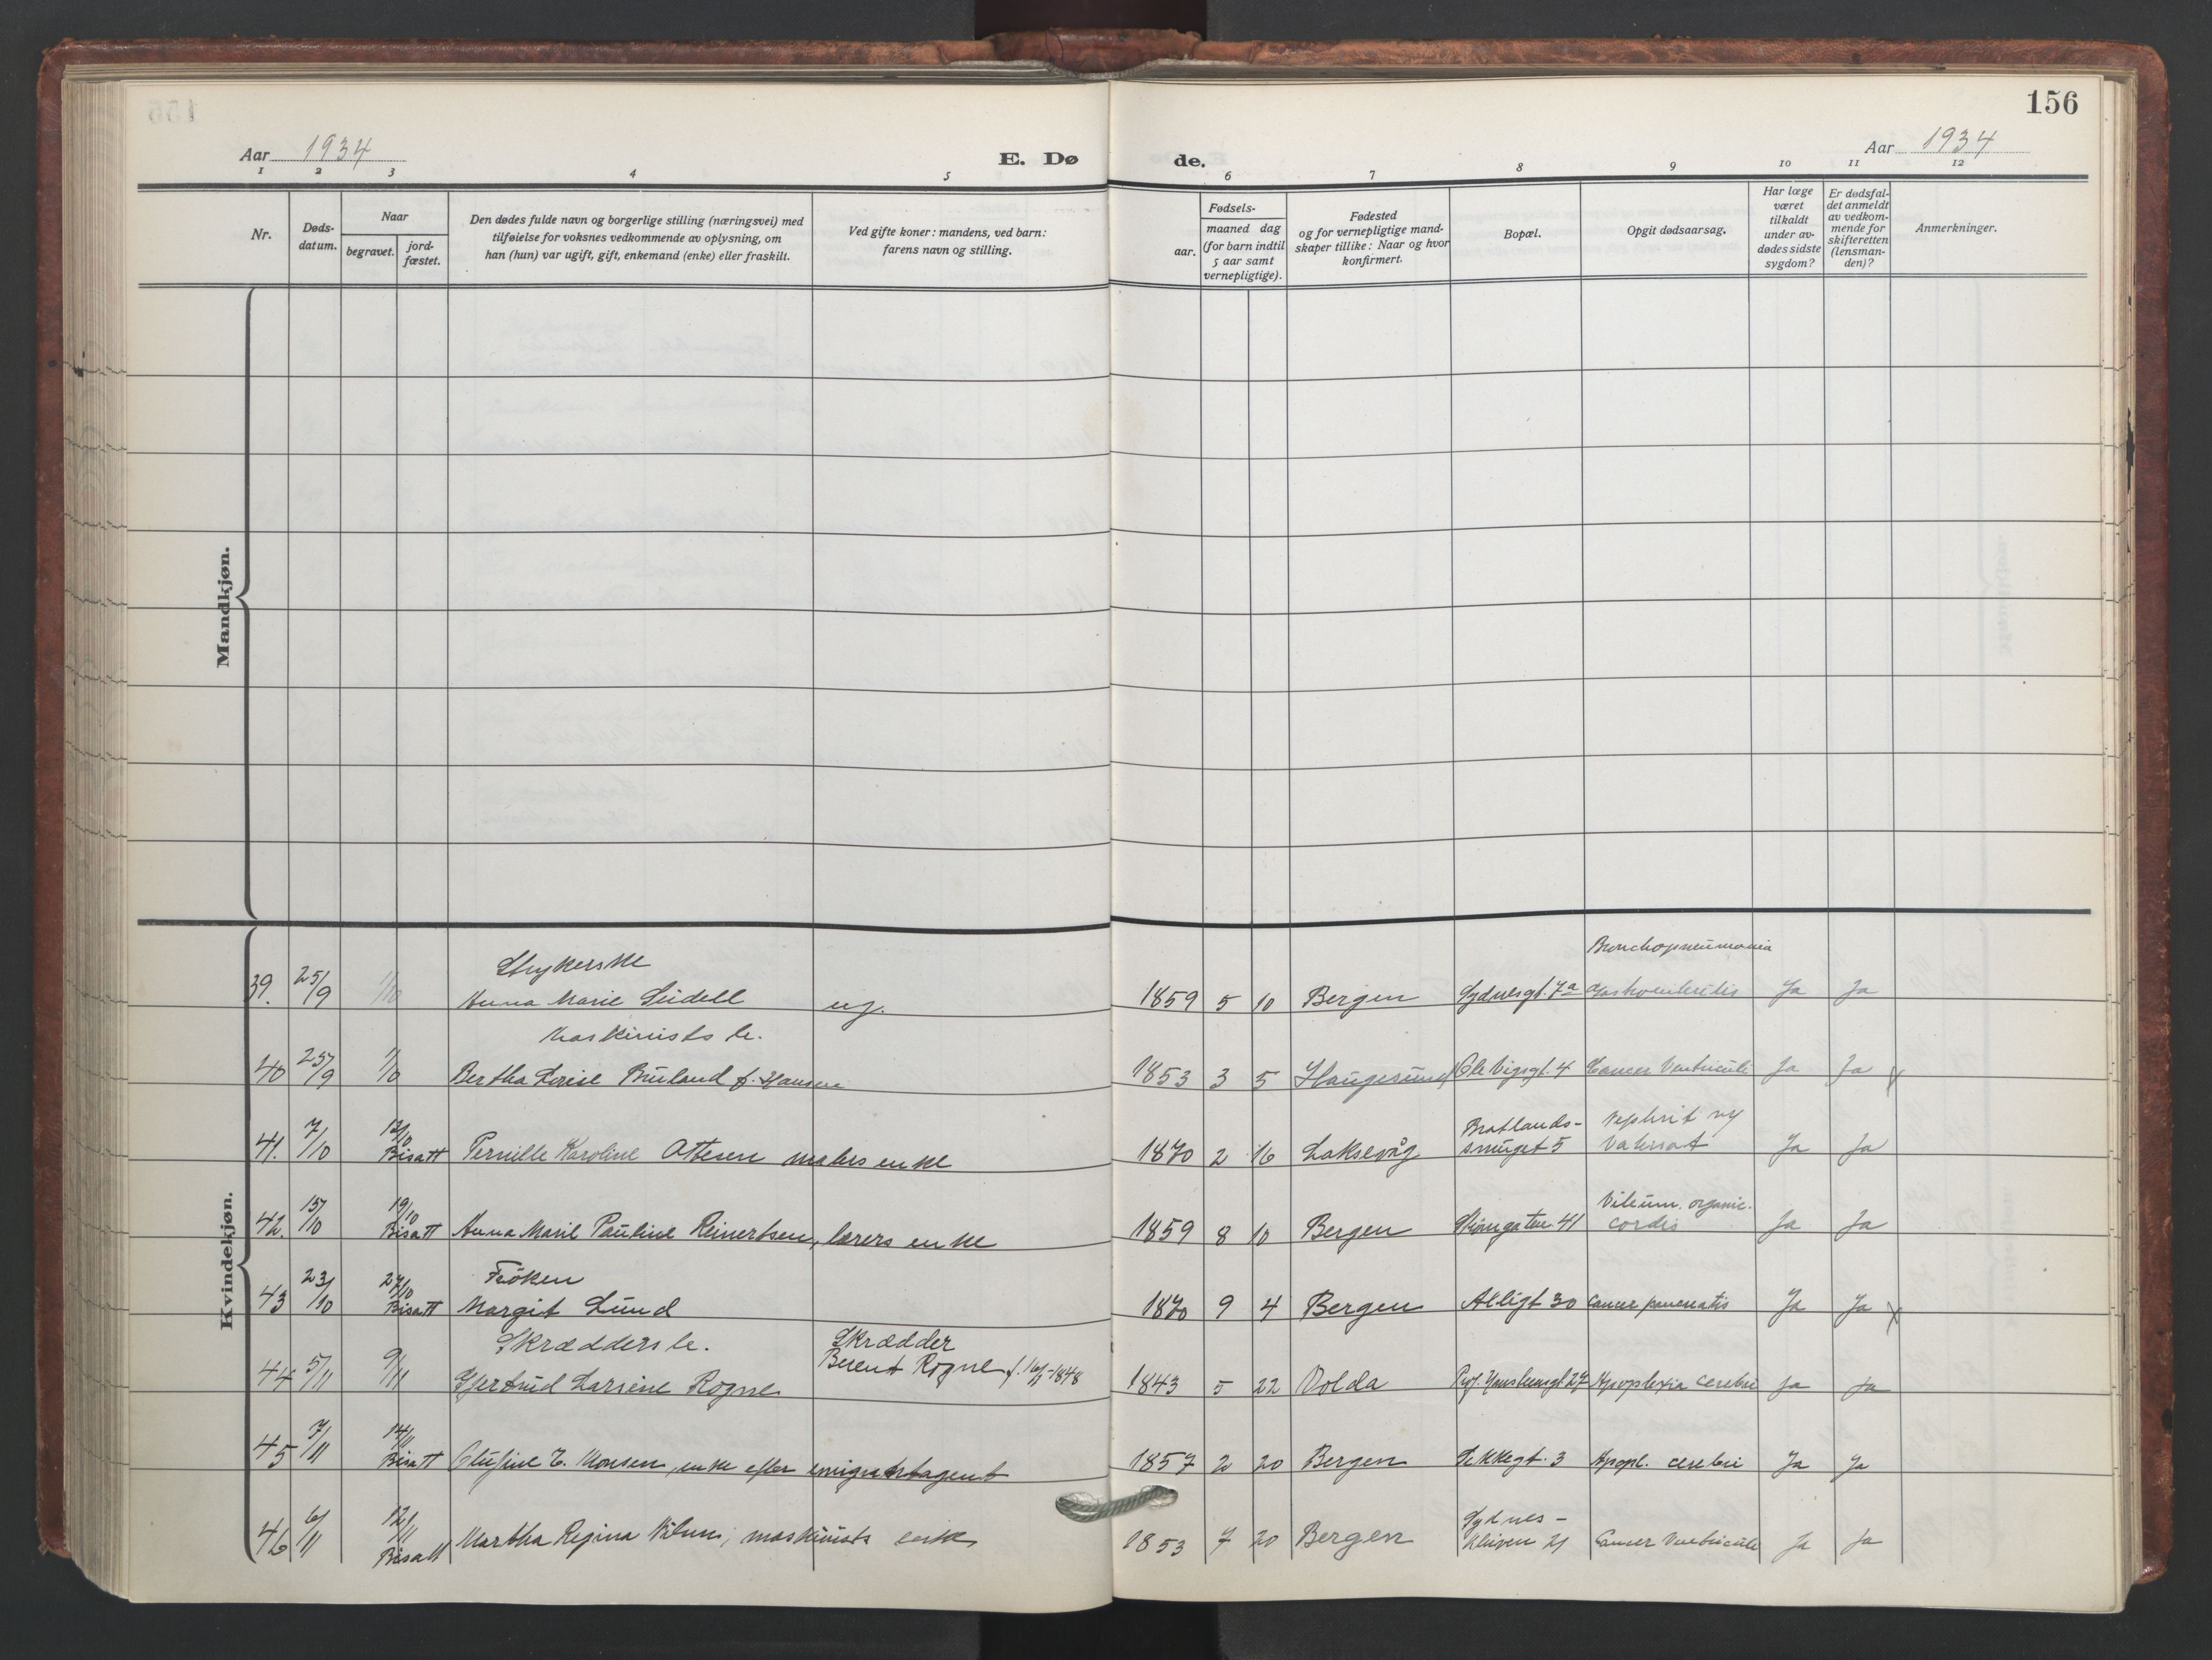 156
Aar 1934
E. Dø de.
Aar 1934
1 2 3 4 5 6 7 8 9 10 11 12
Nr.
Døds-
datum.
Naar
begravet.
jord-
fæstet.
Den dødes fulde navn og borgerlige stilling (næringsvei) med
tilføielse for voksnes vedkommende av oplysning, om
han (hun) var ugift, gift, enkemand (enke) eller fraskilt.
Ved gifte koner: mandens, ved barn:
farens navn og stilling.
Fødsels-
aar.
maaned dag
(for barn indtil
5 aar samt
vernepligtige).
Fødested
og for vernepligtige mand-
skaper tillike: Naar og hvor
konfirmert.
Bopæl.
Opgit dødsaarsag.
Har læge
været
tilkaldt
under av-
dødes sidste
sygdom?
Er dødsfal-
det anmeldt
av vedkom-
mende for
skifteretten
(lensman-
den)?
Anmerkninger.
Mandkjøn.
Kvindekjøn.
Strykerske Bronchopneumonia
39. 25/9 1/10 Anna Marie Lidell ug. 1859 5 10 Bergen Sydnesgt. 7a Gastroenteritis Ja Ja
Maskinists e.
40 25/9 1/10 Bertha Lovise Bruland f. Hansen 1853 3 5 Haugesund Ole Vigsgt. 4 Cancer Ventriculi Ja Ja
12/10 Bratlands- Nephrit og
41. 7/10 Bisatt Pernille Karoline Ottesen malers enke 1870 2 16 Laksevåg smuget 5 Ja Ja
19/10 Vitium. organic.
42. 15/10 Bisatt Anna Marie Pauline Reinertsen, lærers enke 1859 8 10 Bergen 41 cordis Ja Ja
27/10 Fröken
43 23/10 Bisatt Margit Lund 1870 9 4 Bergen Alligt 30 Cancer pancreatis Ja Ja
Skrædders e. Skrædder
44 5/11 9/11 Gjertrud Larsine Rogne Berent Rogne f. 16/-1848 1843 5 22 Volda Prof. Hansteensgt 27 Apoplexia cerebri Ja Ja
14/11
45 7/11 Bisatt Olufine E. Monsen, enke efter emigrantagent 1857 2 20 Bergen Bergen gt. 3 Apopl. cerebri Ja Ja
12/11 Sydnes-
46 6/11 Bisatt Martha Regina, maskinists enke 1853 7 20 Bergen kleiven 21 Cancer Ventriculi Ja Ja